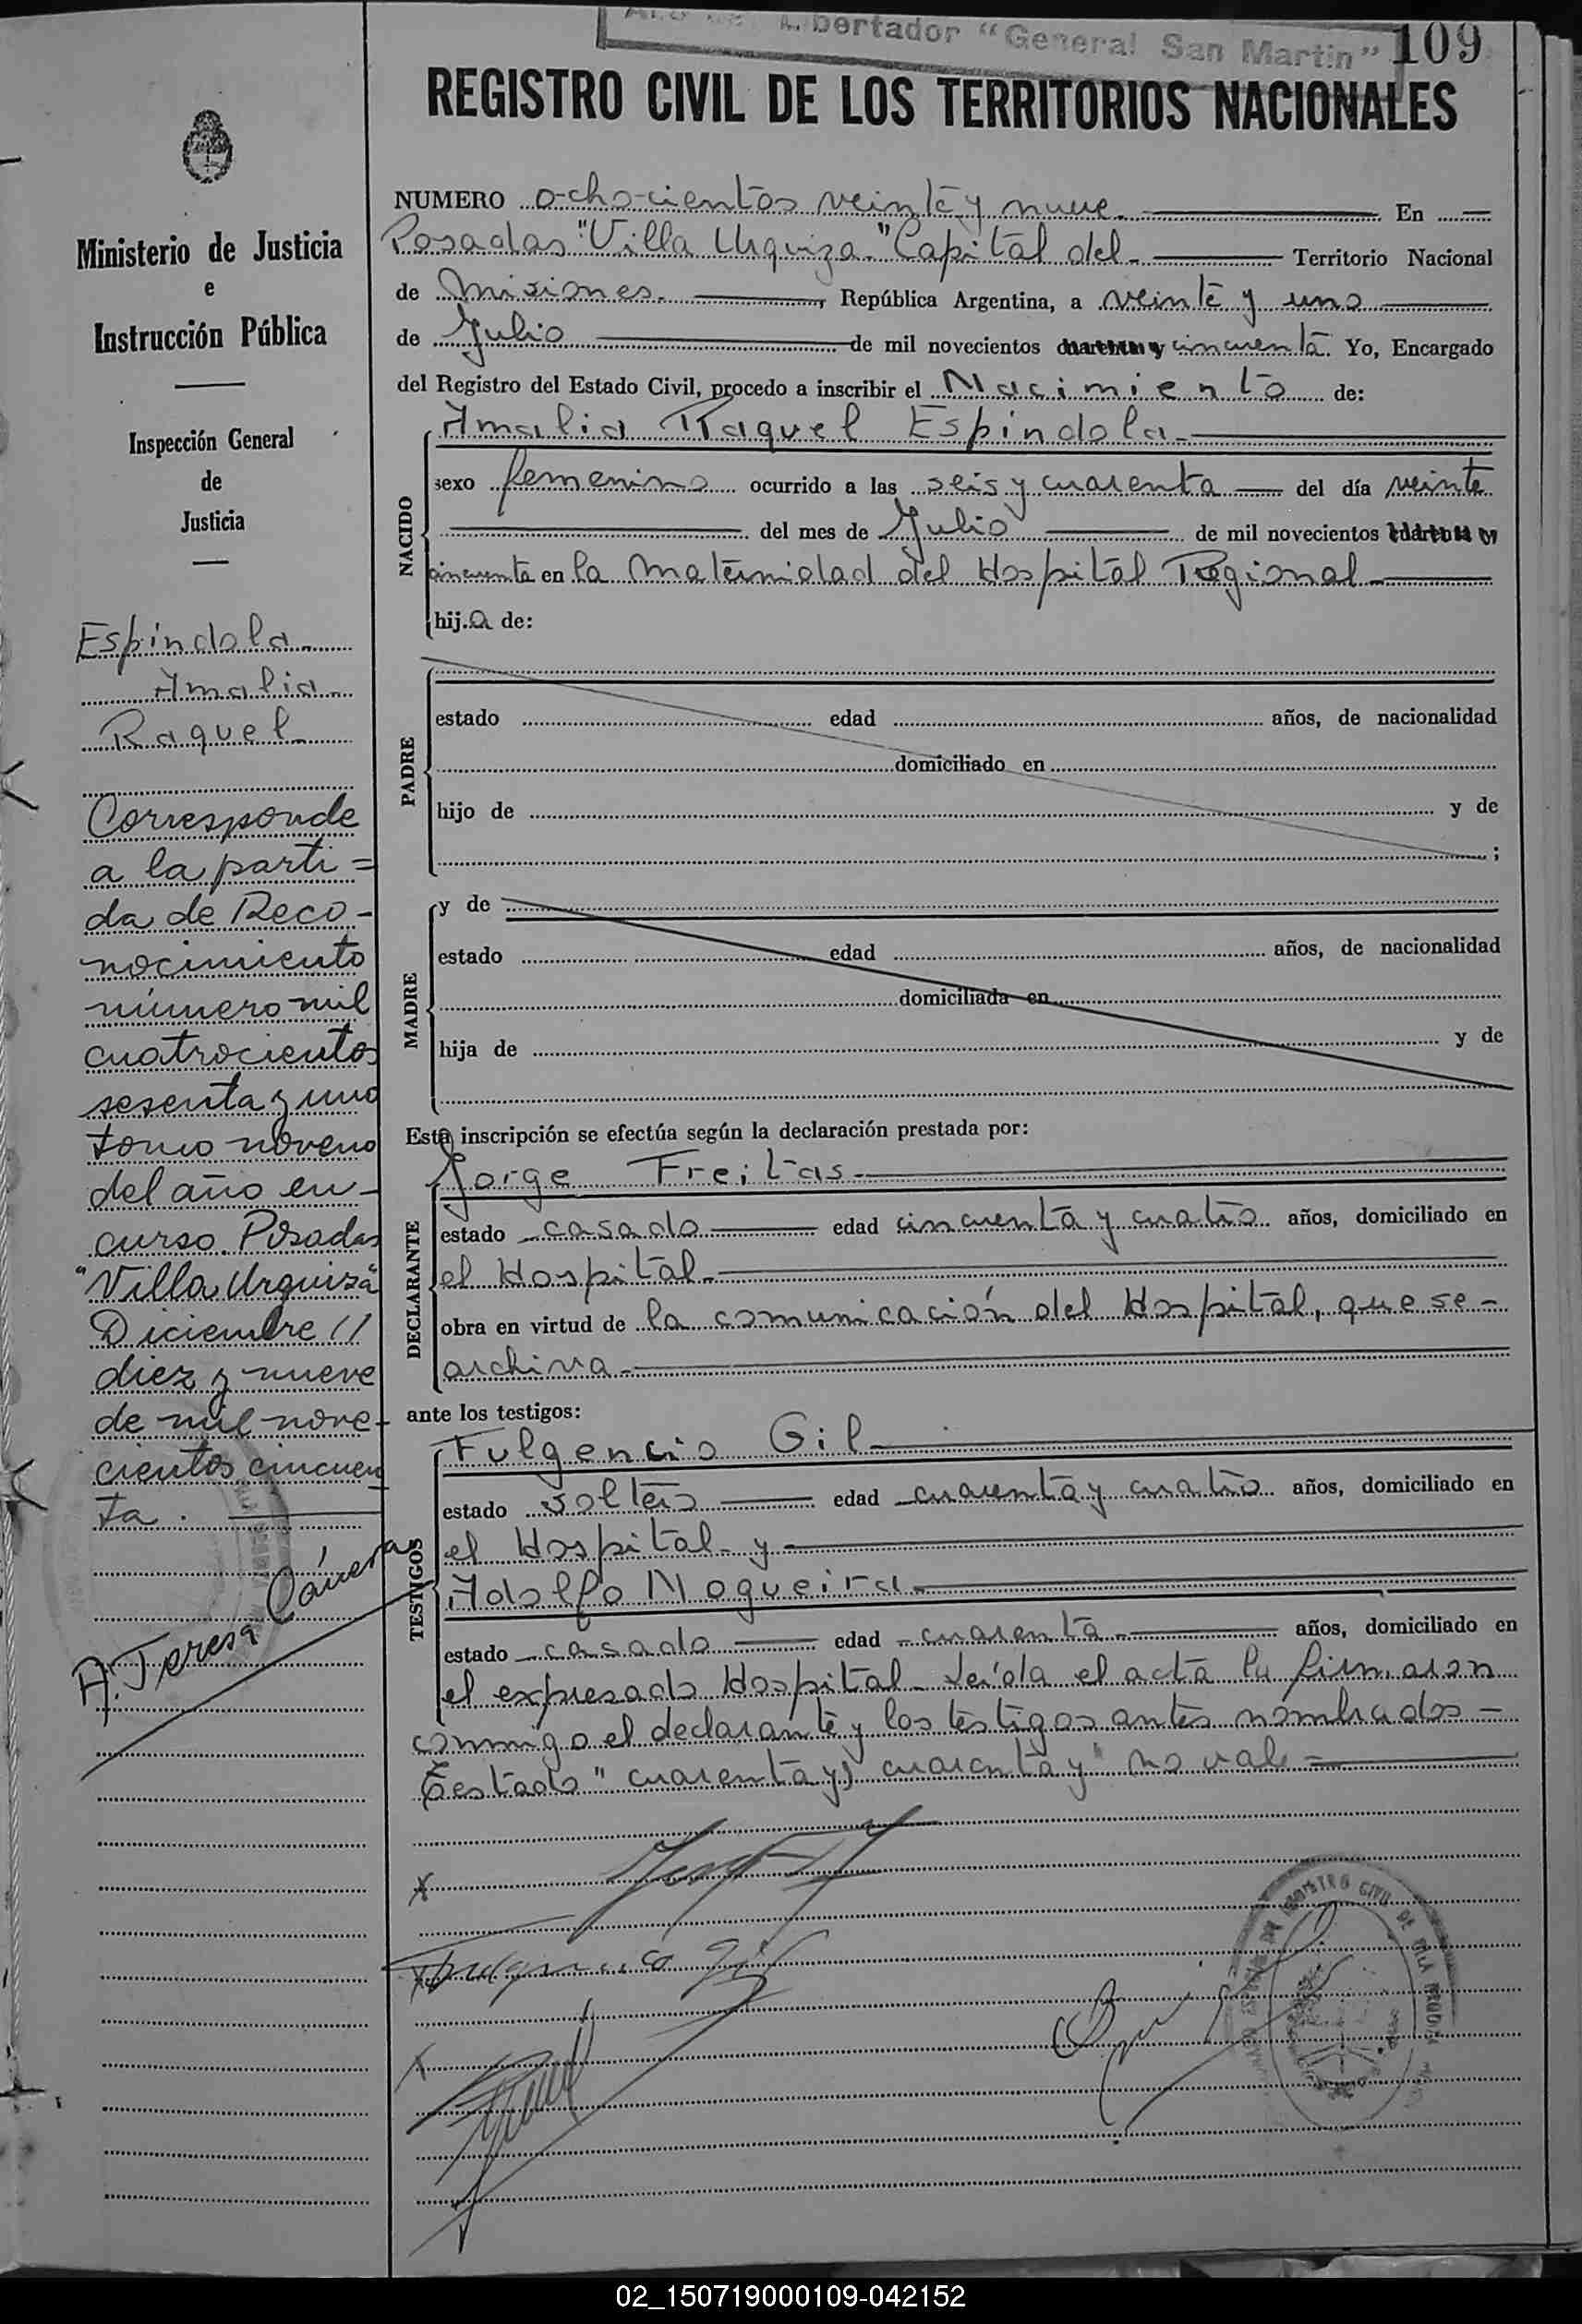 Libertador "General San Martin"
109
REGISTRO CIVIL DE LOS TERRITORIOS NACIONALES
Ministerio de Justicia
e
Instrucción Pública
Inspección General
de
Justicia
Espíndola
Amalia
Raquel
Corresponde
a la parti=
da de Reco-
nocimiento
número mil
cuatrocientos
sesenta y uno
tomo noveno
del año en-
curso. Posadas
"Villa Urquiza"
Diciembre 11
diez y nueve
de mil nove-
cientos cincuen
ta.
A. Teresa
NUMERO ochocientos veinte y nueve. En
Posadas "Villa Urquiza" Capital del Territorio Nacional
de Misiones. República Argentina, a veinte y uno
de Julio de mil novecientos cuarenta y cincuenta. Yo, Encargado
del Registro del Estado Civil, procedo a inscribir el Nacimiento de:
NACIDO
Amalia Raquel Espíndola
sexo femenino ocurrido a las seis y cuarenta del día veinte
del mes de Julio de mil novecientos cuarenta y
cincuenta en la Maternidad del Hospital Regional
hija de:
PADRE
estado edad años, de nacionalidad
domiciliado en
hijo de y de
;
MADRE
y de
estado edad años, de nacionalidad
domiciliada en
hija de y de
Esta inscripción se efectúa según la declaración prestada por:
DECLARANTE
Jorge Freitas
estado casado edad cincuenta y cuatro años, domiciliado en
el Hospital
obra en virtud de la comunicación del Hospital, que se-
archiva
ante los testigos:
TESTIGOS
Fulgencio Gil
estado soltero edad cuarenta y cuatro años, domiciliado en
el Hospital y
Adolfo Nogueira
estado casado edad cuarenta años, domiciliado en
el expresado Hospital. Leída el acta la firmaron
conmigo el declarante y los testigos antes nombrados-
Testado "cuarenta y) cuarenta y" no vale=
Fulgencio Gil
REGISTRO CIVIL DE VILLA URQUIZA
02_150719000109-042152